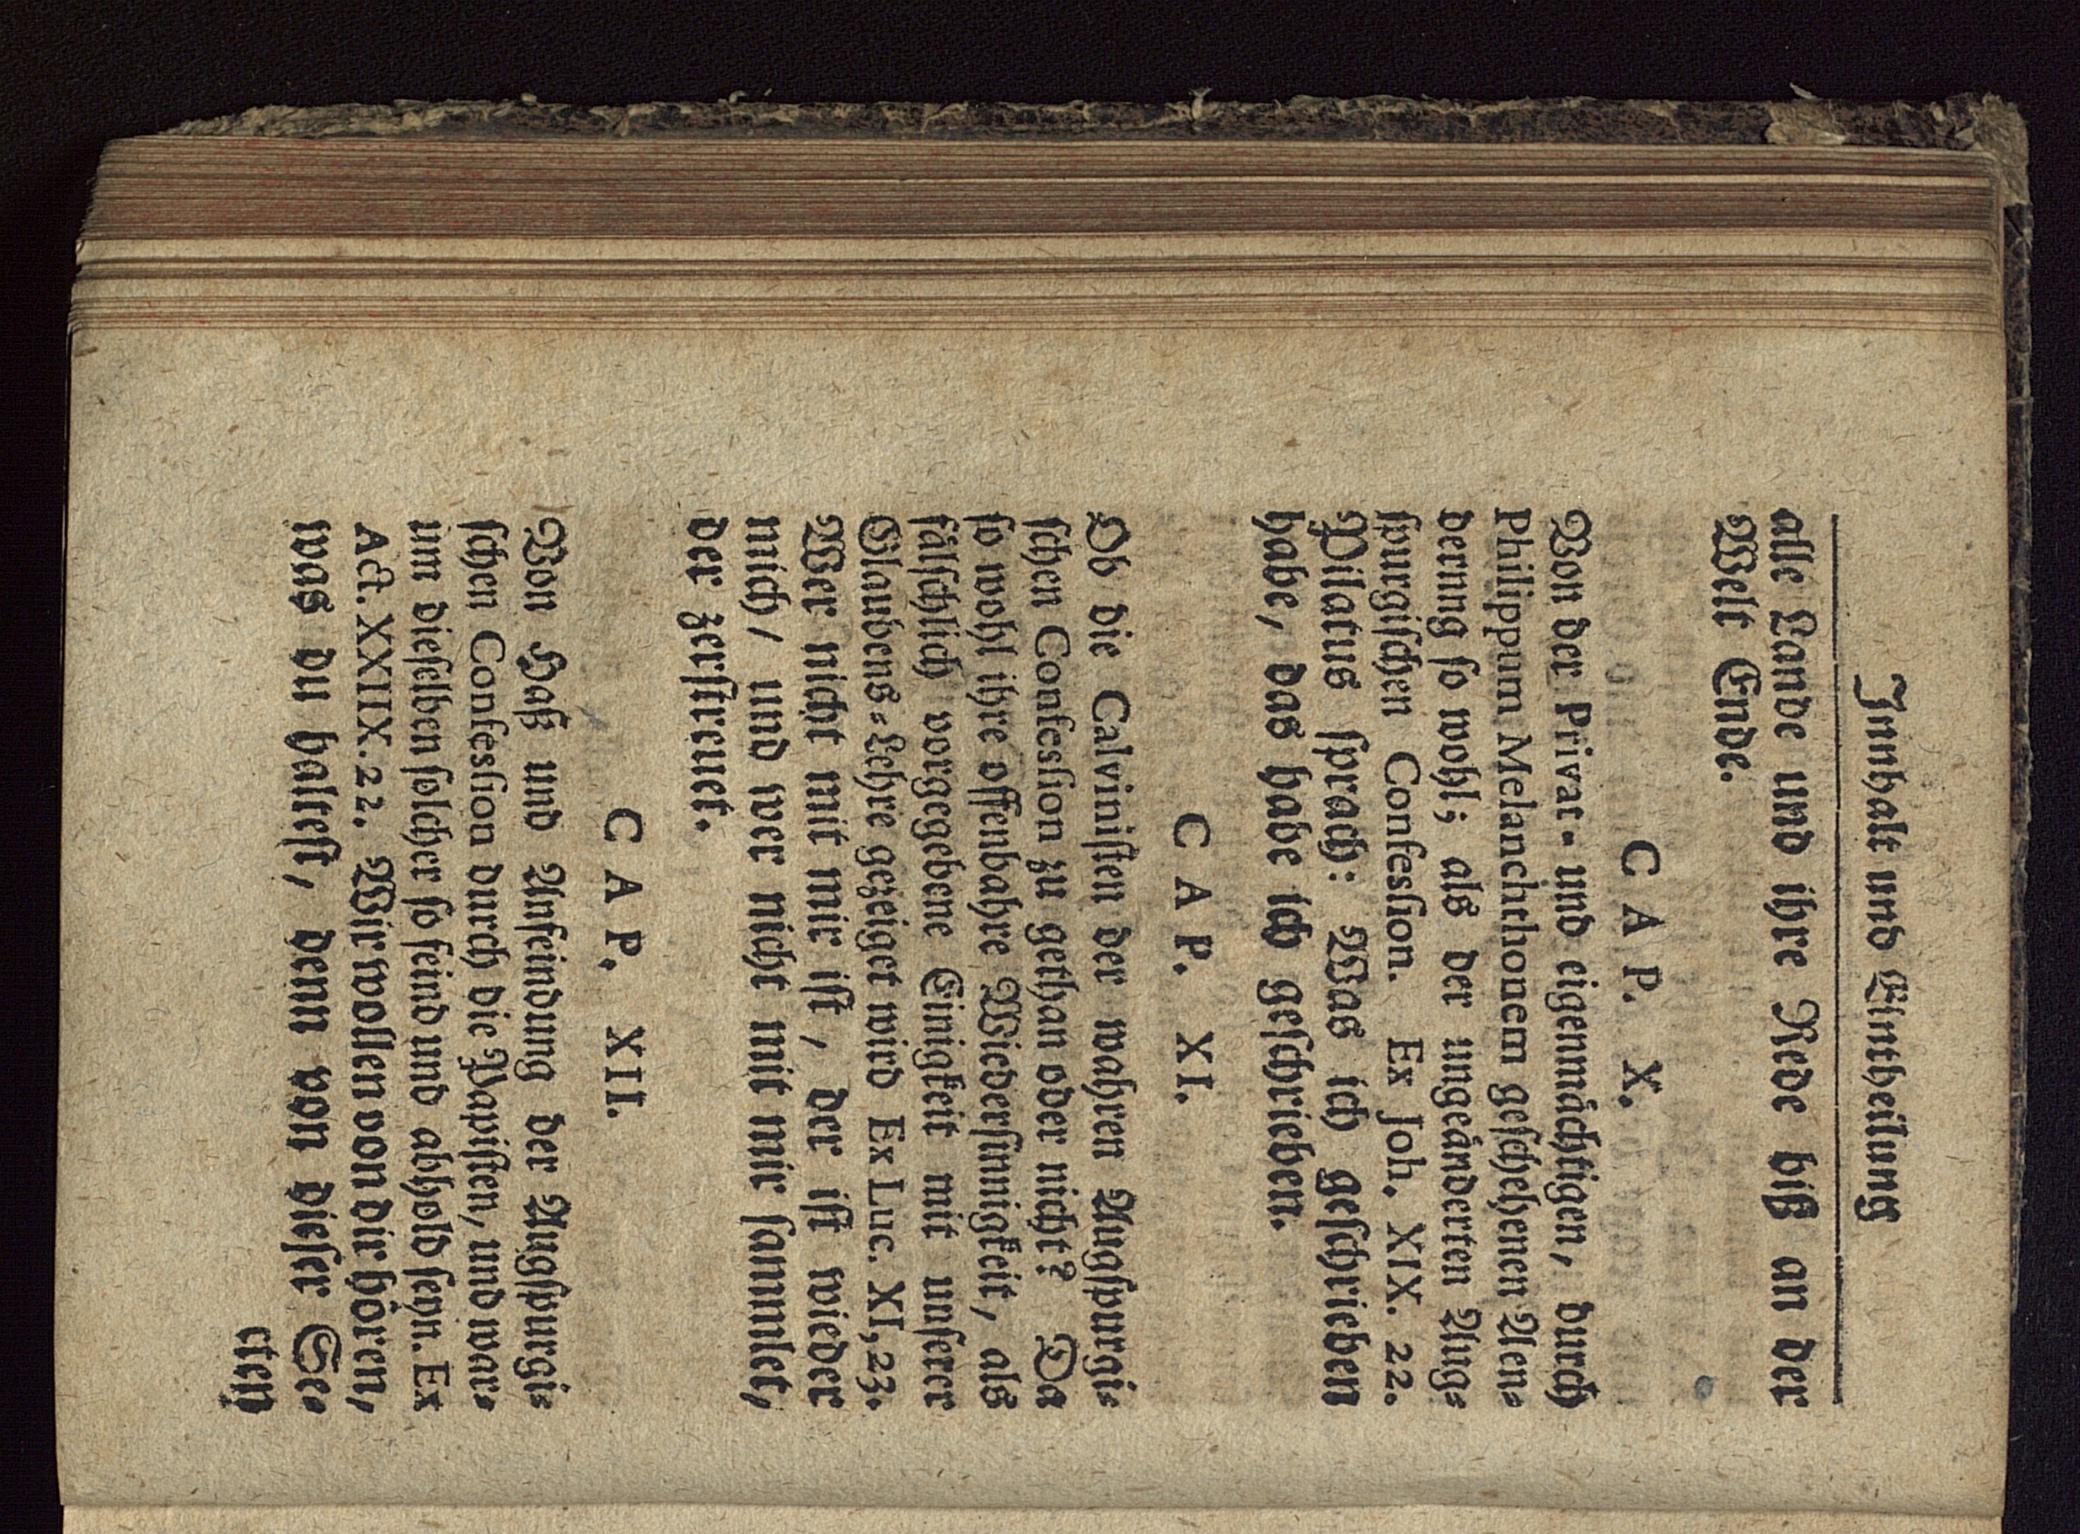 Innhalt und Eintheilung
alle Lande und ihre Rede biß an der
Welt Ende.
CAP. X.
Von der Privat- und eigenmächtigen, durch
Philippum Melanchthonem geschehenen Aen-
derung so wohl; als der ungeänderten Aug-
spurgischen Confession. Ex Joh. XIX. 22.
Pilatus sprach: Was ich geschrieben
habe, das habe ich geschrieben.
CAP. XI.
Ob die Calvinisten der wahren Augspurgi-
schen Confession zu gethan oder nicht? Da
so wohl ihre offenbahre Wiedersinnigkeit, als
fälschlich vorgegebene Einigkeit mit unserer
Glaubens-Lehre gezeiget wird Ex Luc. XI, 23.
Wer nicht mit mir ist, der ist wieder
mich/ und wer nicht mit mir sammlet,
der zerstreuet.
CAP. XII.
Von Haß und Anfeindung der Augspurgi-
schen Confession durch die Papisten, und war-
um dieselben selcher so feind und abhold seyn. Ex
Act. XXIIX. 22. Wir wollen von dir hören,
was du haltest, denn von dieser Se-
cten